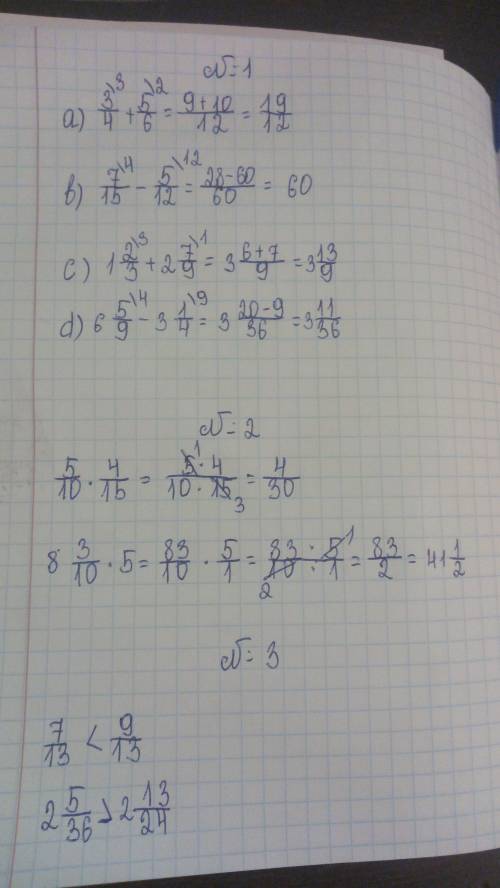 №1
a) 3/4\3 + 5/6\2 = 9+10/12 = 19/12
b) 7/15\4 - 5/12\12 = 28-60/60 = 60
c) 1 2/3\3 + 2 7/9\1 = 3 6+7/9 = 3 13/9
d) 6 5/9\4 - 3 1/4\9 = 3 20-9/36 = 3 11/36
№2
5/10 · 4/15 = 5·4/10·15 1 3 = 4/30
8 3/10 · 5 = 83/10 · 5/1 = 83·5/10·1 1 2 = 83/2 = 41 1/2
№3
7/13 < 9/13
2 5/36 > 2 13/24